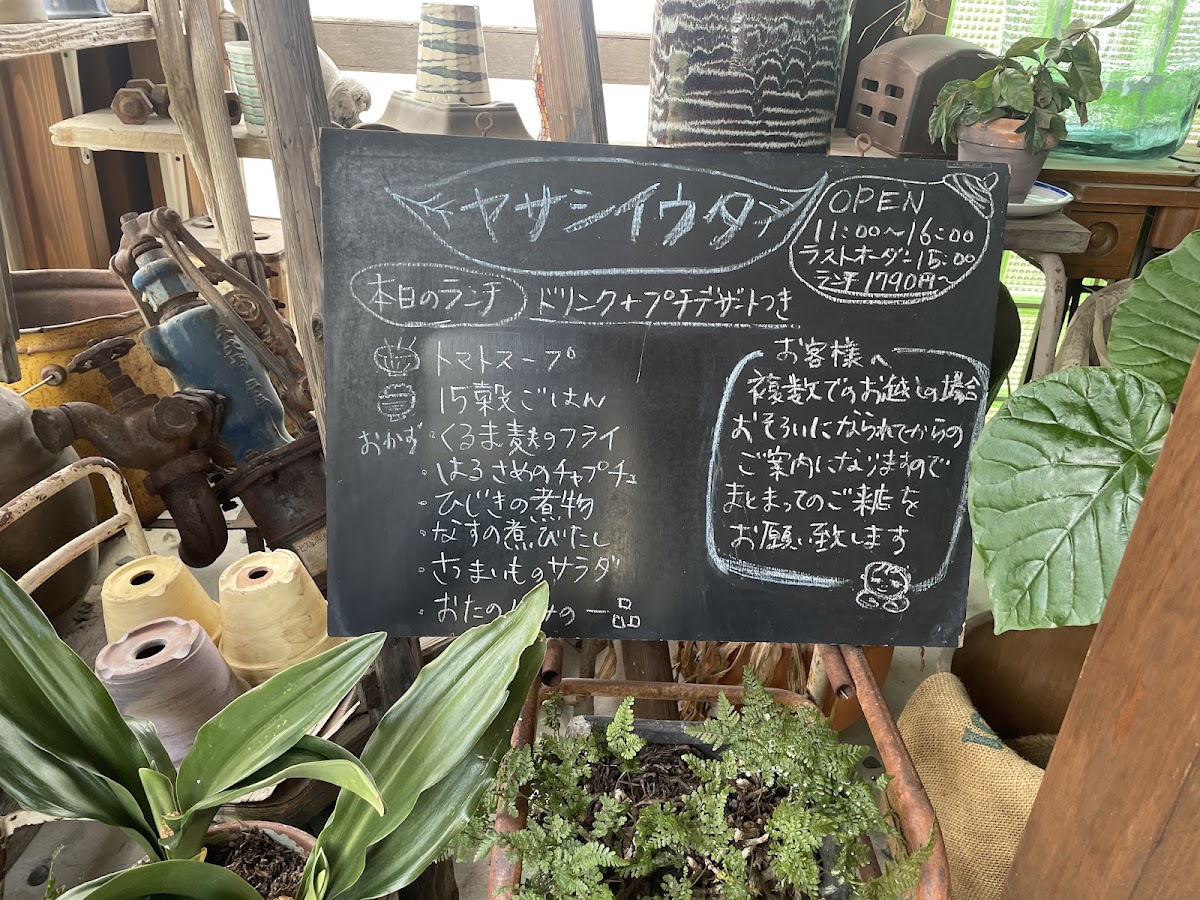 ヤサシイウタ
OPEN
11:00~16:00
ラストオーダー15:00
ランチ1790円~
本日のランチ
ドリンク+プチデザートつき
トマトスープ
15穀ごはん
おかず・くるま麩のフライ
・はるさめのチャプチェ
・ひじきの煮物
・なすの煮びたし
・さつまいものサラダ
・おたのしみの一品
お客様へ
複数でのお越しの場合
おそろいになられてからの
ご案内になりますので
まとまってのご来店を
お願い致します